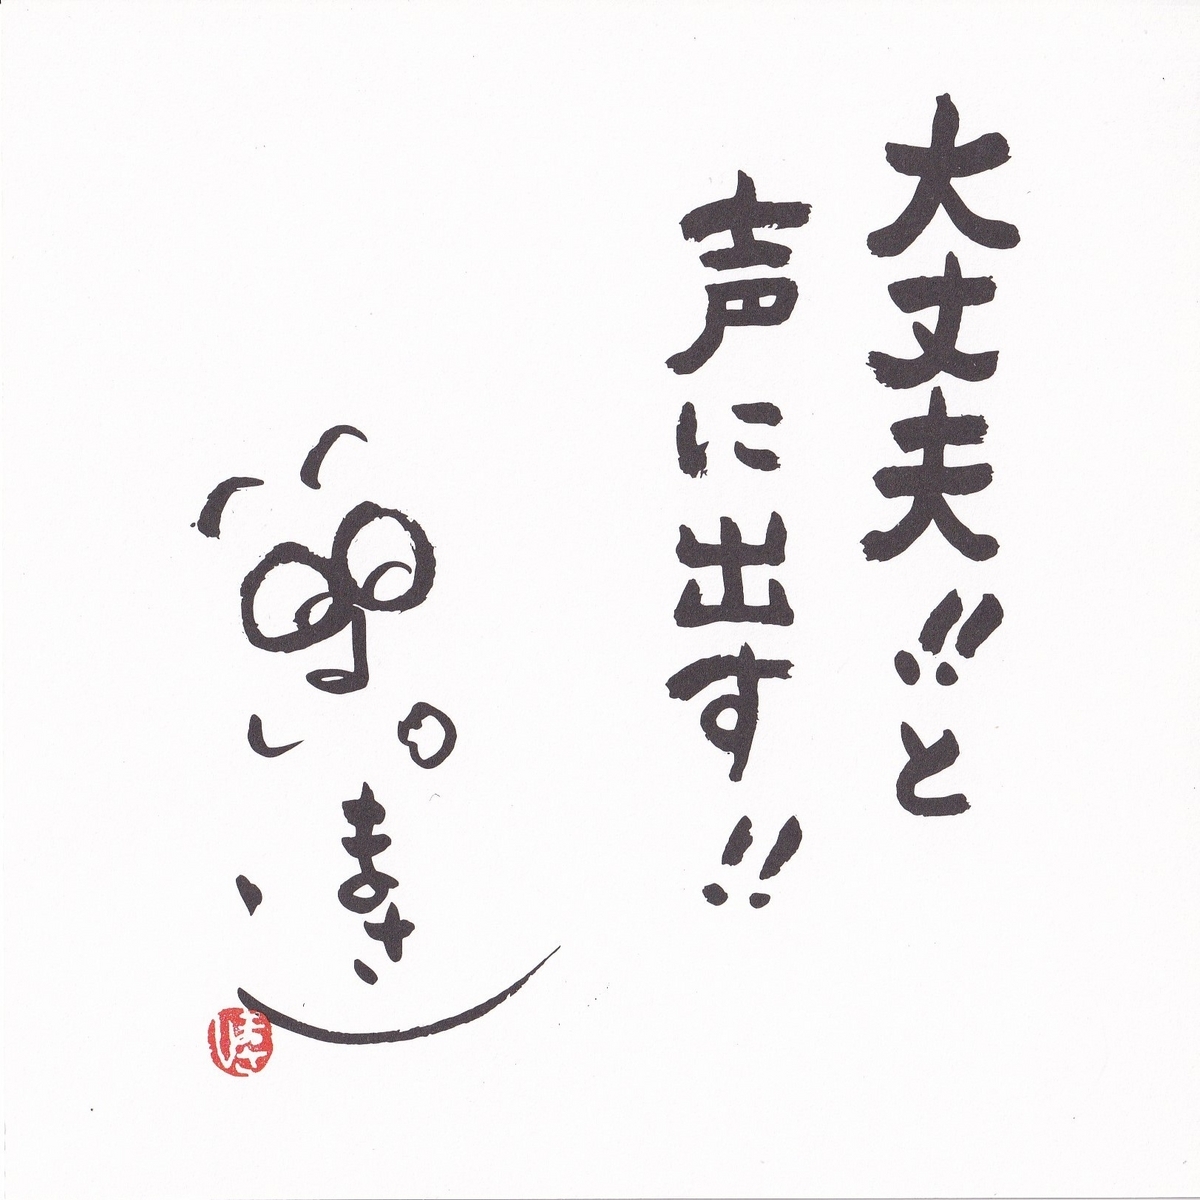 大丈夫!!と
声に出す!!
まさ